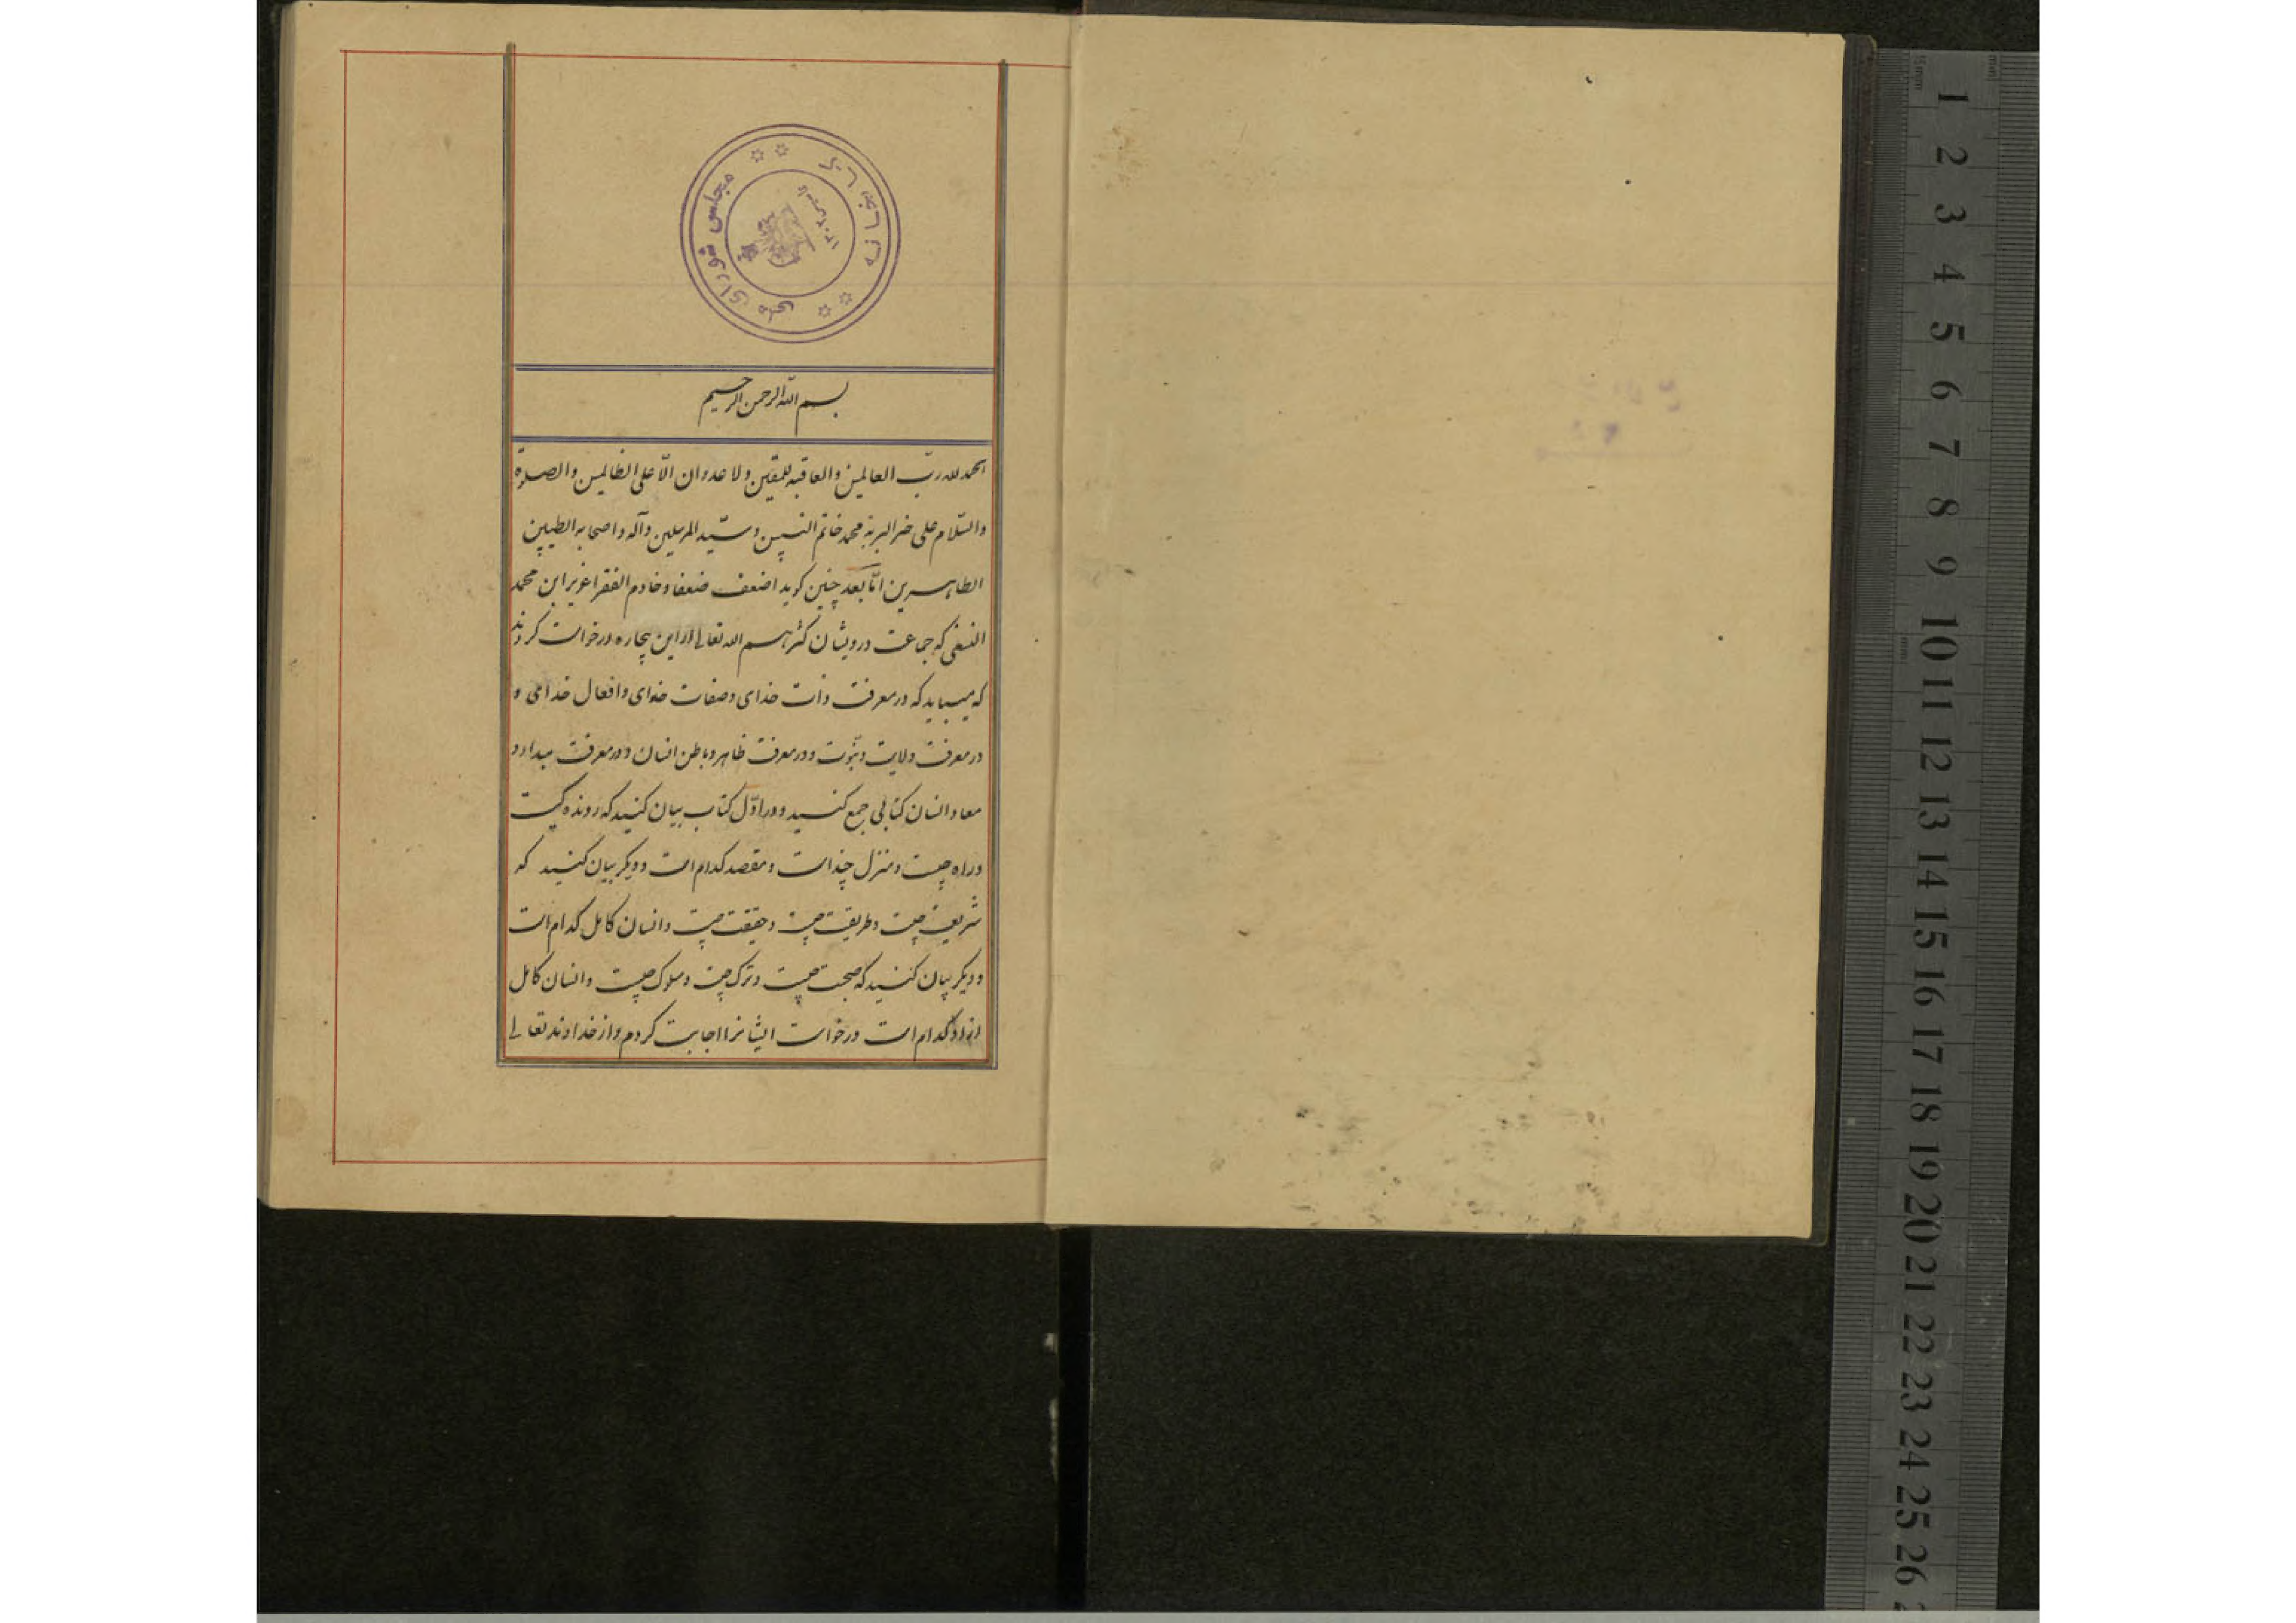 کتابخانه
مجلس شورای ملی
بسم الله الرحمن الرحیم
الحمد لله ربّ العالمین والعاقبه للمتقین ولا عدوان الّا علی الظالمین والصلوة
والسّلام علی خیر البریة محمد خاتم النبیین وسیّد المرسلین وآله واصحابه الطیبین
الطاهرین امّا بعد چنین کوید اضعف ضعفا وخادم الفقرا عزیز ابن محمد
النسفی که جماعت درویشان کثرهم الله تعالی از این بیچاره درخواست کردند
که میباید که در معرفت ذات خدای وصفات خدای وافعال خدای و
در معرفت ولایت ونبوت ودر معرفت ظاهر وباطن انسان ودر معرفت مبداء و
معاد انسان کتابی جمع کنید ودر اوّل کتاب بیان کنید که رونده کیست
وراه چیست ومنزل چند است ومقصد کدام است ودیکر بیان کنید که
شریعت چیست وطریقت چیست وحقیقت چیست وانسان کامل کدام است
ودیکر بیان کنید که صحبت چیست وترک چیست وسلوک چیست وانسان کامل
ازاد کدام است درخواست ایشانرا اجابت کردم واز خداوند تعالی
1
2
3
4
5
6
7
8
9
10
11
12
13
14
15
16
17
18
19
20
21
22
23
24
25
26